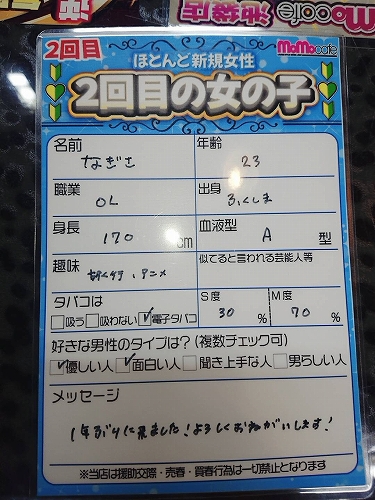 MoMocafe 池袋店
2回目
ほとんど新規女性
MoMocafe
2回目の女の子
名前 なぎさ
年齢 23
職業 OL
出身 ふくしま
身長 170 cm
血液型 A 型
趣味 アニメ
似てると言われる芸能人等
タバコは
□吸う □吸わない ☑電子タバコ
S度 30 %
M度 70 %
好きな男性のタイプは？(複数チェック可)
☑優しい人 ☑面白い人 □聞き上手な人 □男らしい人
メッセージ
1年ぶりに来ました！よろしくおねがいします！
※当店は援助交際・売春・買春行為は一切禁止となります